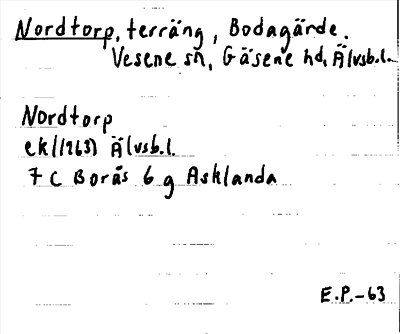 Nordtorp, terräng, Bodagärde.
Vesene sn, Gäsene hd, Älvsb.l.
Nordtorp
ek(1963) Älvsb.l.
7 C Borås 6 g Asklanda
E.P.-63